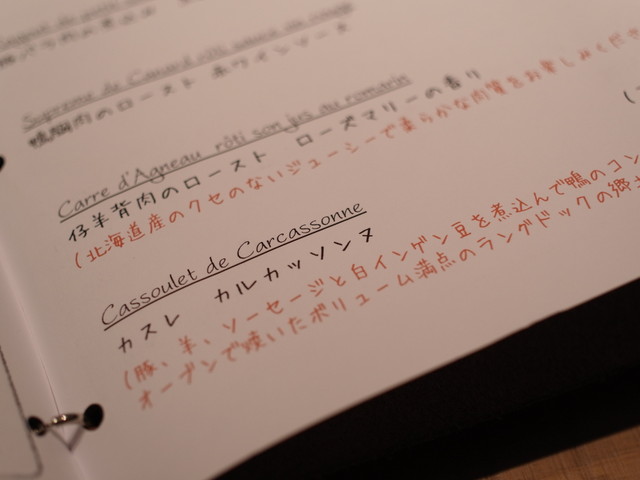 Supreme de Canard rôti sauce au rouge
鴨胸肉のロースト 赤ワインソース
Carre d'Agneau rôti son jus au romarin
仔羊背肉のロースト ローズマリーの香り
(北海道産のクセのないジューシーで柔らかな肉質をお楽しみくださ
Cassoulet de Carcassonne
カスレ カルカッソンヌ
(豚、羊、ソーセージと白インゲン豆を煮込んで鴨のコン
オーブンで焼いたボリューム満点のラングドックの郷土